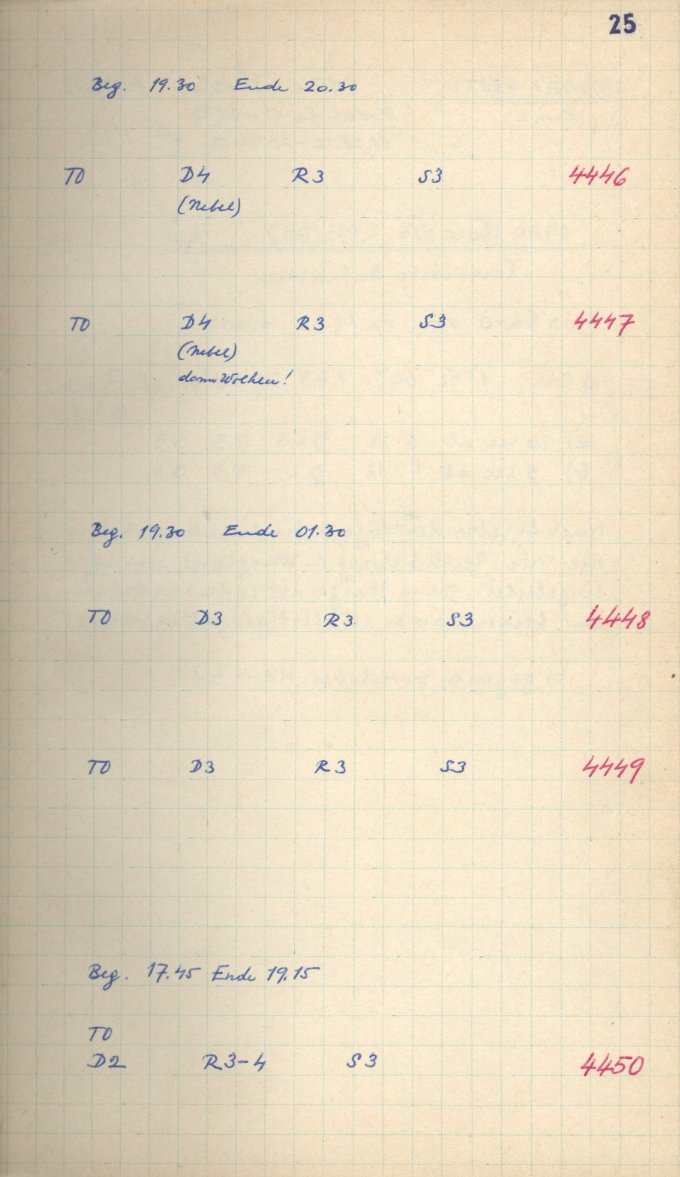 25
Beg. 19.30 Ende 20.30
T0 D4 R3 S3 4446
(Nebel)
T0 D4 R3 S3 4447
(Nebel)
dann Wolken!
Beg. 19.30 Ende 01.30
T0 D3 R3 S3 4448
T0 D3 R3 S3 4449
Beg. 17.45 Ende 19.15
T0
D2 R3-4 S3 4450